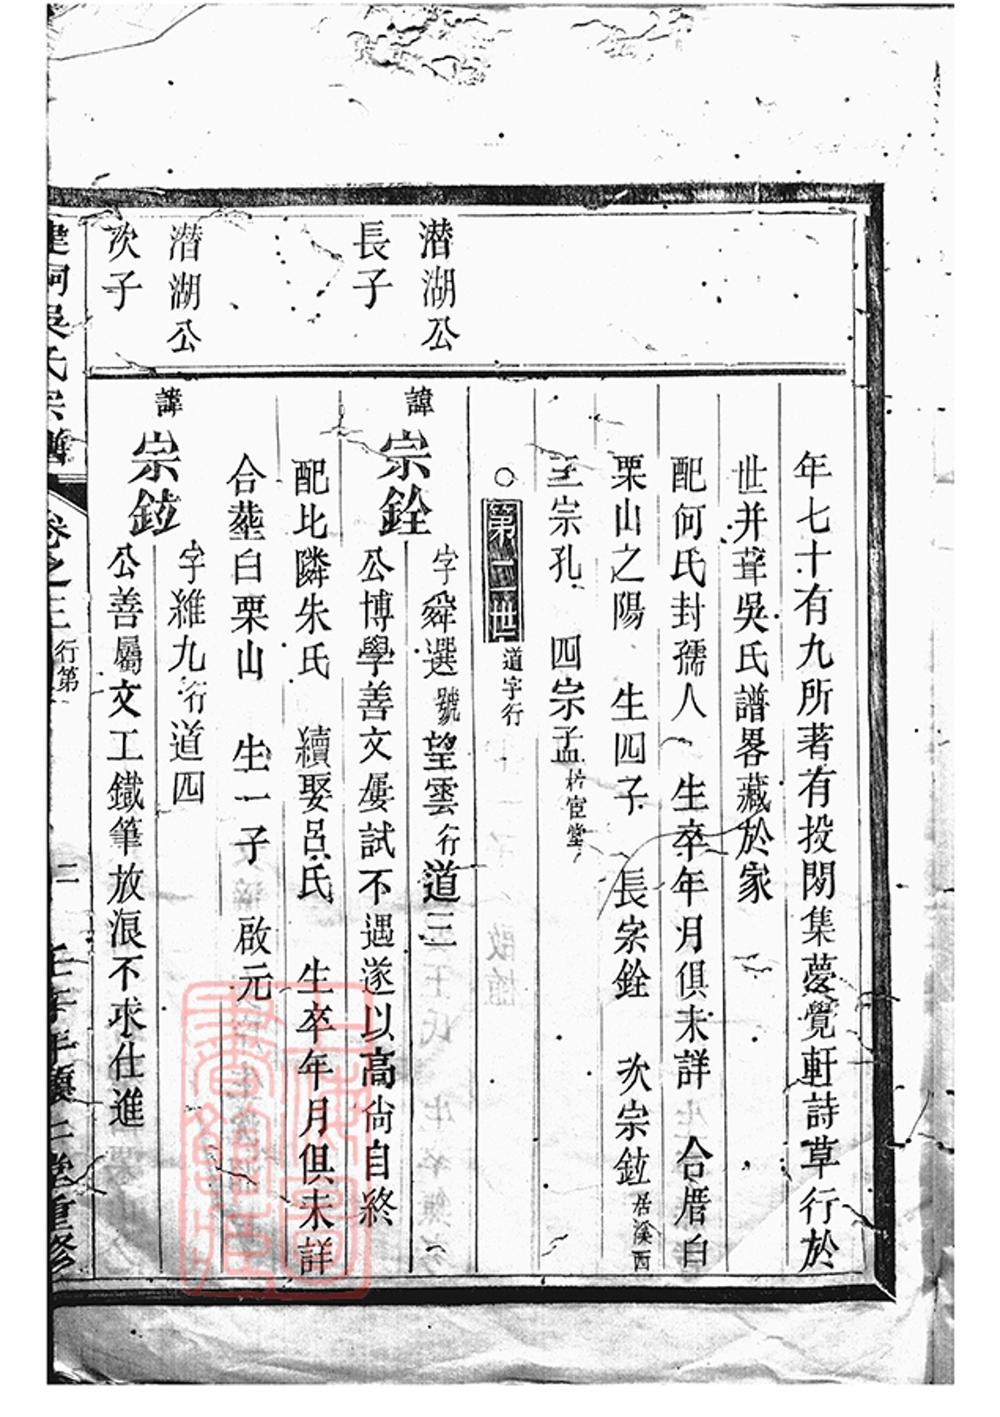 年七十有九所著有投閑集夢覺軒詩草行於
世并葺吳氏譜畧藏於家
配何氏封孺人 生卒年月俱未詳 合厝白
栗山之陽 生四子 長宗銓 次宗鉝居溪西
三宗孔 四宗孟析宦堂
○第二世道字行
潛湖公
長子
諱宗銓
字舜選號望雲行道三
公博學善文屢試不遇遂以高尚自終
配比隣朱氏 續娶呂氏 生卒年月俱未詳
合塟白栗山 生一子 啟元
潛湖公
次子
諱宗鉝
字維九行道四
公善屬文工鐵筆放浪不求仕進
吳氏宗譜
卷之三行第
二
壬午年
堂重修
上海圖書館藏